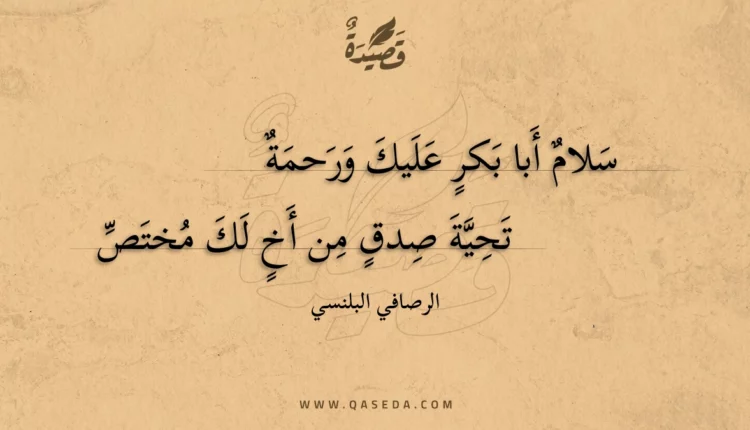 قَصِيْدَةٌ
سَلامٌ أَبا بَكرٍ عَلَيكَ وَرَحمَةٌ
تَحِيَّةَ صِدقٍ مِن أَخٍ لَكَ مُختَصِّ
الرصافي البلنسي
WWW.QASEDA.COM